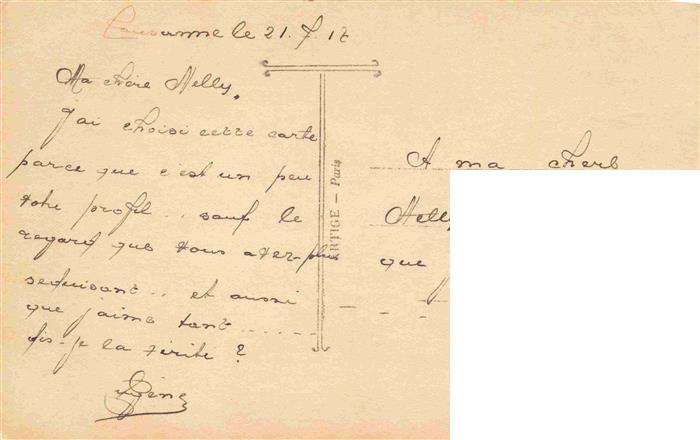 Lausanne le 21. 7. 17
Ma chère Nelly.
j'ai choisi cette carte
parce que c'est un peu
votre profil.. sauf le
regard que vous avez plus
seduisant.. et aussi
que j'aime tant......
dis-je la vérité ?
A ma
Nelly
que
ARTIGE - Paris